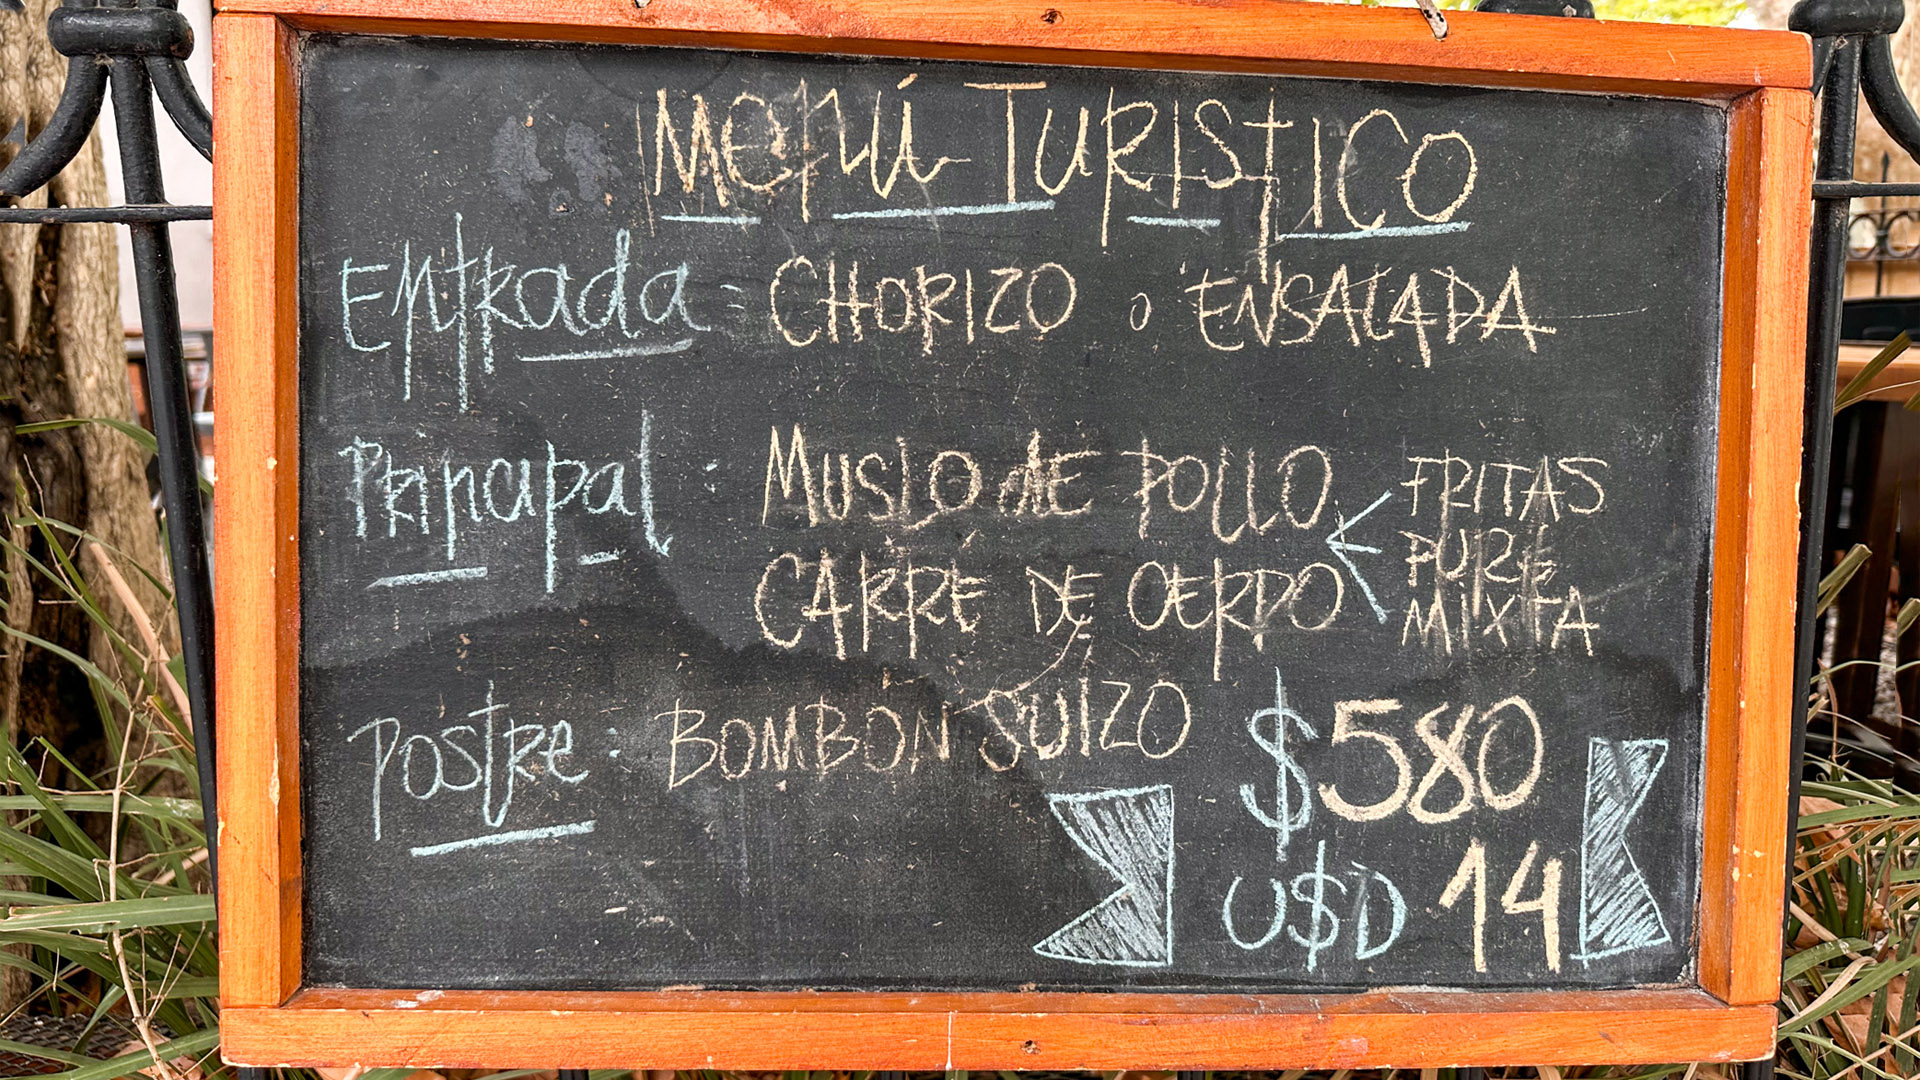 MENÚ TURISTICO
Entrada = CHORIZO o ENSALADA
Principal : MUSLO de POLLO < FRITAS
PURÉ
CARRÉ DE CERDO MIXTA
Postre : BOMBÓN SUIZO
$580
U$D 14